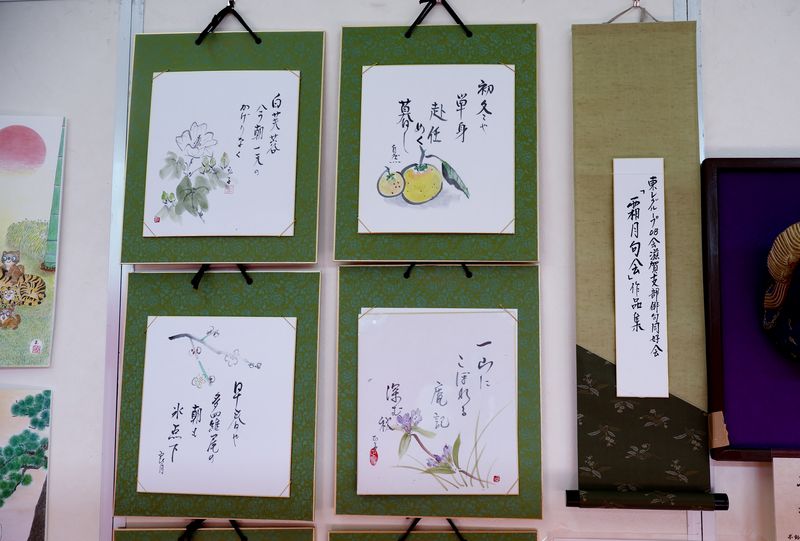 白芙蓉
今朝一花の
かげりなく
初冬や
単身
赴任めく
暮し
東レグループOB会滋賀支部俳句同好会
「霜月句会」作品集
早春や
多羅尾の
朝も
氷点下
一山に
こぼれる
深む秋